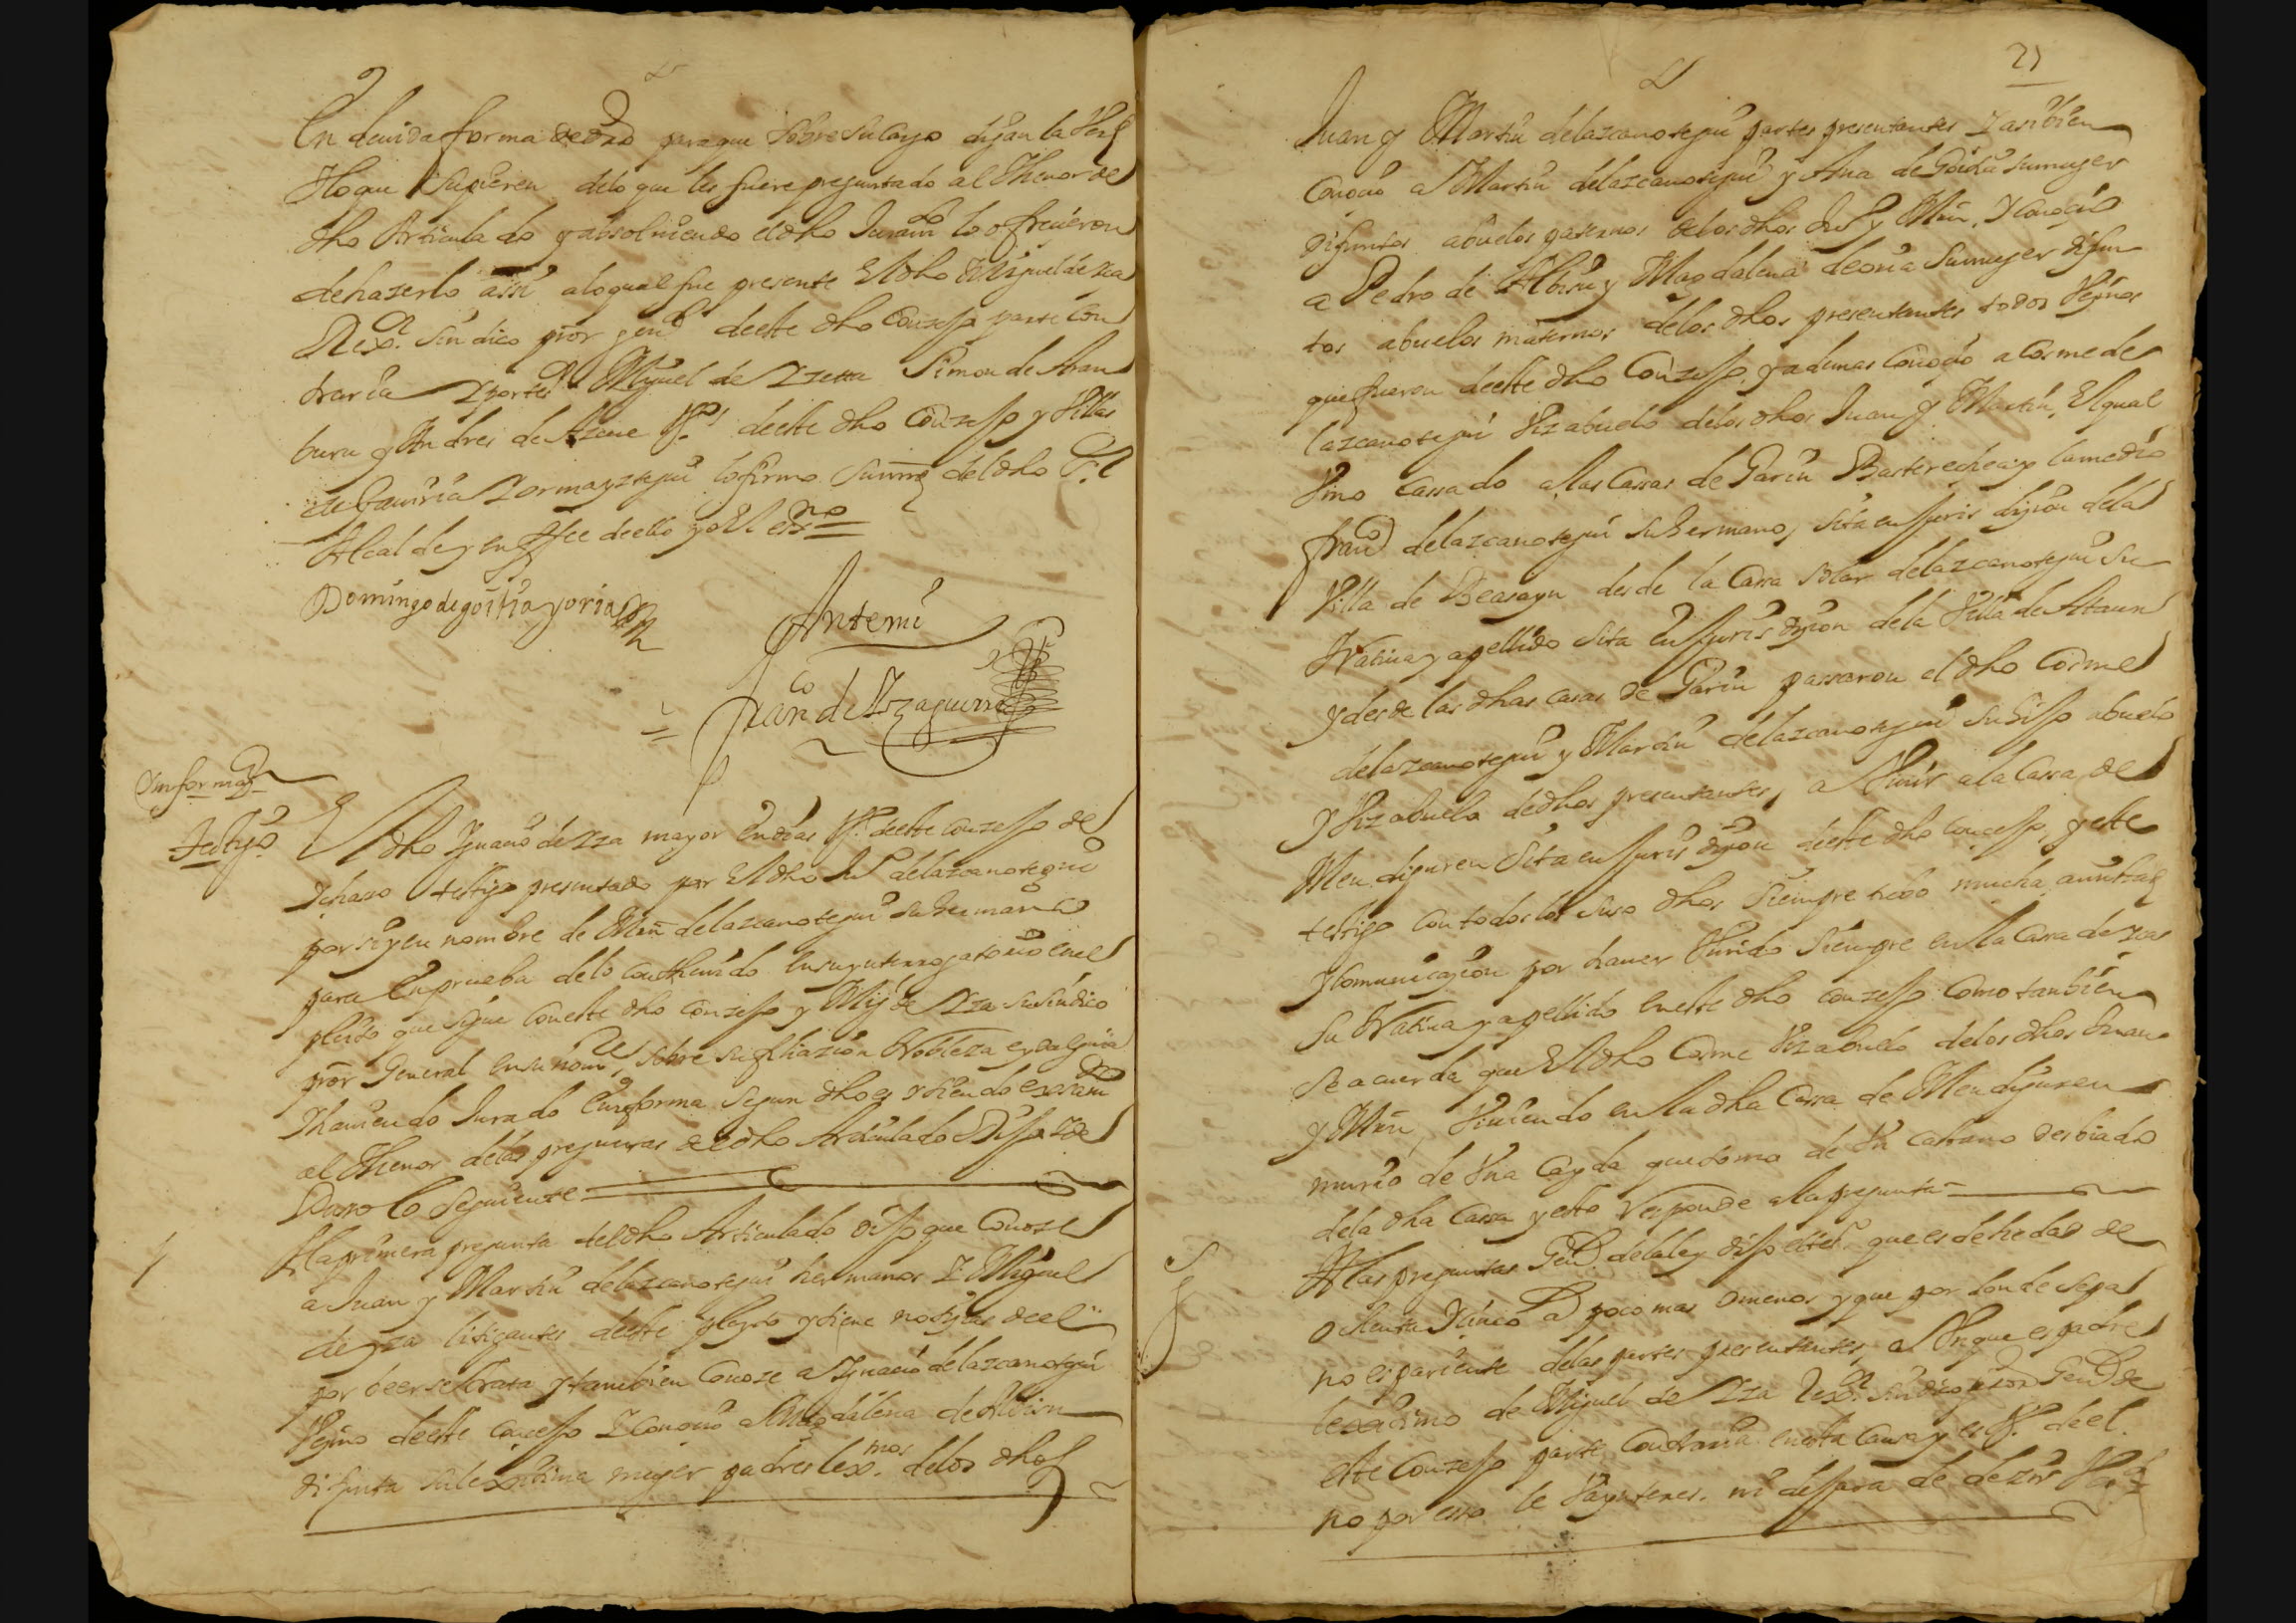 En deuida forma de dro para que sobre su cargo digan la Verd
Ylo que supieren delo que les fuere preguntado al Thenor de
dho Articulado y absoluiendo el dho Juramto lo ofreçieron
de hazerlo assi alo qual fue presente El dho Miguel de Yza
Rexor sindico pror genl deeste dho Conzejo parte Con
traria Y por teso Miguel de Yzetta Simon de Aran
buru y Andres de Azcue Vos deeste dho Conzejo y Villas
de Gauiria Y ormayztegui lo firmo su mrd del dho Sor
Alcalde y en ffee deello yo El essno
Domingo de goitia y oria
Antemi
=
Franco de Yzaguirre
Ynformazn
Testigo
El dho Ygnaçio de Yza mayor en dias Vo deeste conzejo de
Ychaso testigo presentado por El dho Jun de lazcanotegui
por si y en nombre de Mrn de lazcanotegui su hermano
para En prueba delo Conthenido en su ynterrogatorio en el
pleito que sigue con este dho Conzejo y Migl de Yza su sindico
pror General en su nonbre, sobre su filiazion Nobleza e ydalguia
Yhauiendo Jurado En forma segun dho es y siendo examdo
al Thenor delas preguntas del dho Articulado Dijo Y de
Puso lo siguiente
1
Ala primera pregunta del dho Articulado dijo que Conoze
a Juan y Martin de lazcanotegui hermanos Y Miguel
de yza litigantes deeste pleyto y tiene notiçia deel
por beer se trata y tambien Conoze a Ygnaçio de lazcanotegui
Vezino deeste conçejo Y Conoçio a Magdalena de Albisu
difunta su lexitima muger padres lexmos delos dhos
21
Juan y Martin de lazcanotegui partes presentantes Y asi bien
Conoçio a Martin de lazcanotegui y Ana de Goitia su muger
difuntos abuelos paternos delos dhos Jun y Mrn, Y conoçio
a Pedro de Albisu y Magdalena de oria su muger difun
tos abuelos maternos delos dhos presentantes todos Vezinos
que fueron deeste dho Conzejo, y ademas Conoçio a Cosme de
lazcanotegui Vizabuelo delos dhos Juan y Martin, El qual
Vino Cassado a las Cassas de Garin Basterechea y lamedio
franco de lazcanotegui su hermano, sita en Juris diçion dela
Villa de Beasayn desde la Cassa solar de lazcanotegui su
Natiua y apellido sita en Juris dizion dela Villa de Ataun
y desde las dhas casas de Garin passaron el dho Cosme
de lazcanotegui y Martin de lazcanotegui su hijo abuelo
y Vizabuelo de dhos presentantes, a Viuir a la Cassa de
Mendiguren sita en Juris dizion deeste dho Conçejo, y este
testigo con todos los suso dhos siempre tubo mucha amistad
y Comunicazion por hauer Viuido siempre en la Cassa de Yza
su Natiua y apellido en este dho conzejo como tambien
se acuerda que El dho Cosme Vizabuelo delos dhos Juan
y Mrn, Viuiendo en la dha Cassa de Mendiguren
murio de Vna Cayda que tomo de Vn Castano desbiado
dela dha Cassa y esto Responde a la pregunta
A las preguntas Genes de la ley dijo este to que es de hedad de
ochenta Y çinco as poco mas o menos y que por donde sepa
no es pariente delas partes presentantes, a Vnque es padre
lexitimo de Miguel de Yza Rexor sindico pror Genl de
este Conzejo parte Contraria en esta Causa y es Vo deel.
no por esso le Va ynteres. ni dejara de dezir Verd